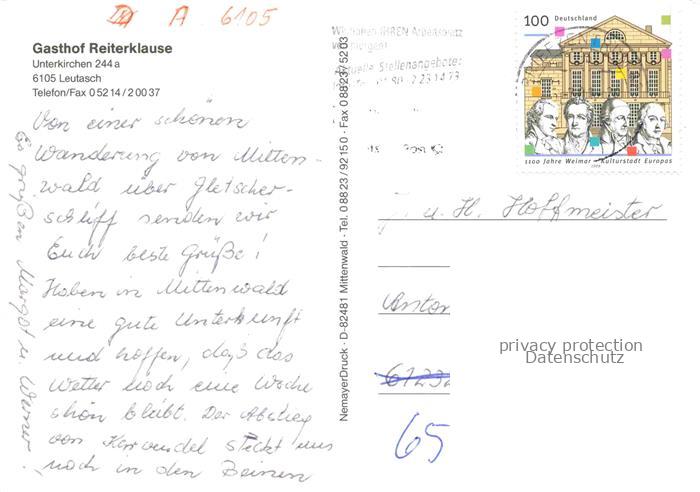 A 6105
Gasthof Reiterklause
Unterkirchen 244 a
6105 Leutasch
Telefon/Fax 0 52 14 / 2 00 37
Von einer schönen
Wanderung von Mitten-
wald über Gletscher-
schliff senden wir
Euch beste Grüße!
Haben in Mittenwald
eine gute Unterkunft
und hoffen, daß das
Wetter noch eine Woche
schön bleibt. Der Abstieg
von Karwendel steckt uns
noch in den Beinen
Es grüßen Margot u. Werner.
NemayerDruck · D-82481 Mittenwald · Tel. 0 88 23 / 92 15 0 · Fax 0 88 23 / 52 03
IHREN Arbeitsplatz
Aktuelle Stellenangebote:
100 Deutschland
1100 Jahre Weimar - Kulturstadt Europas
1999
u. H. Hoffmeister
Anton
6123
65
privacy protection
Datenschutz